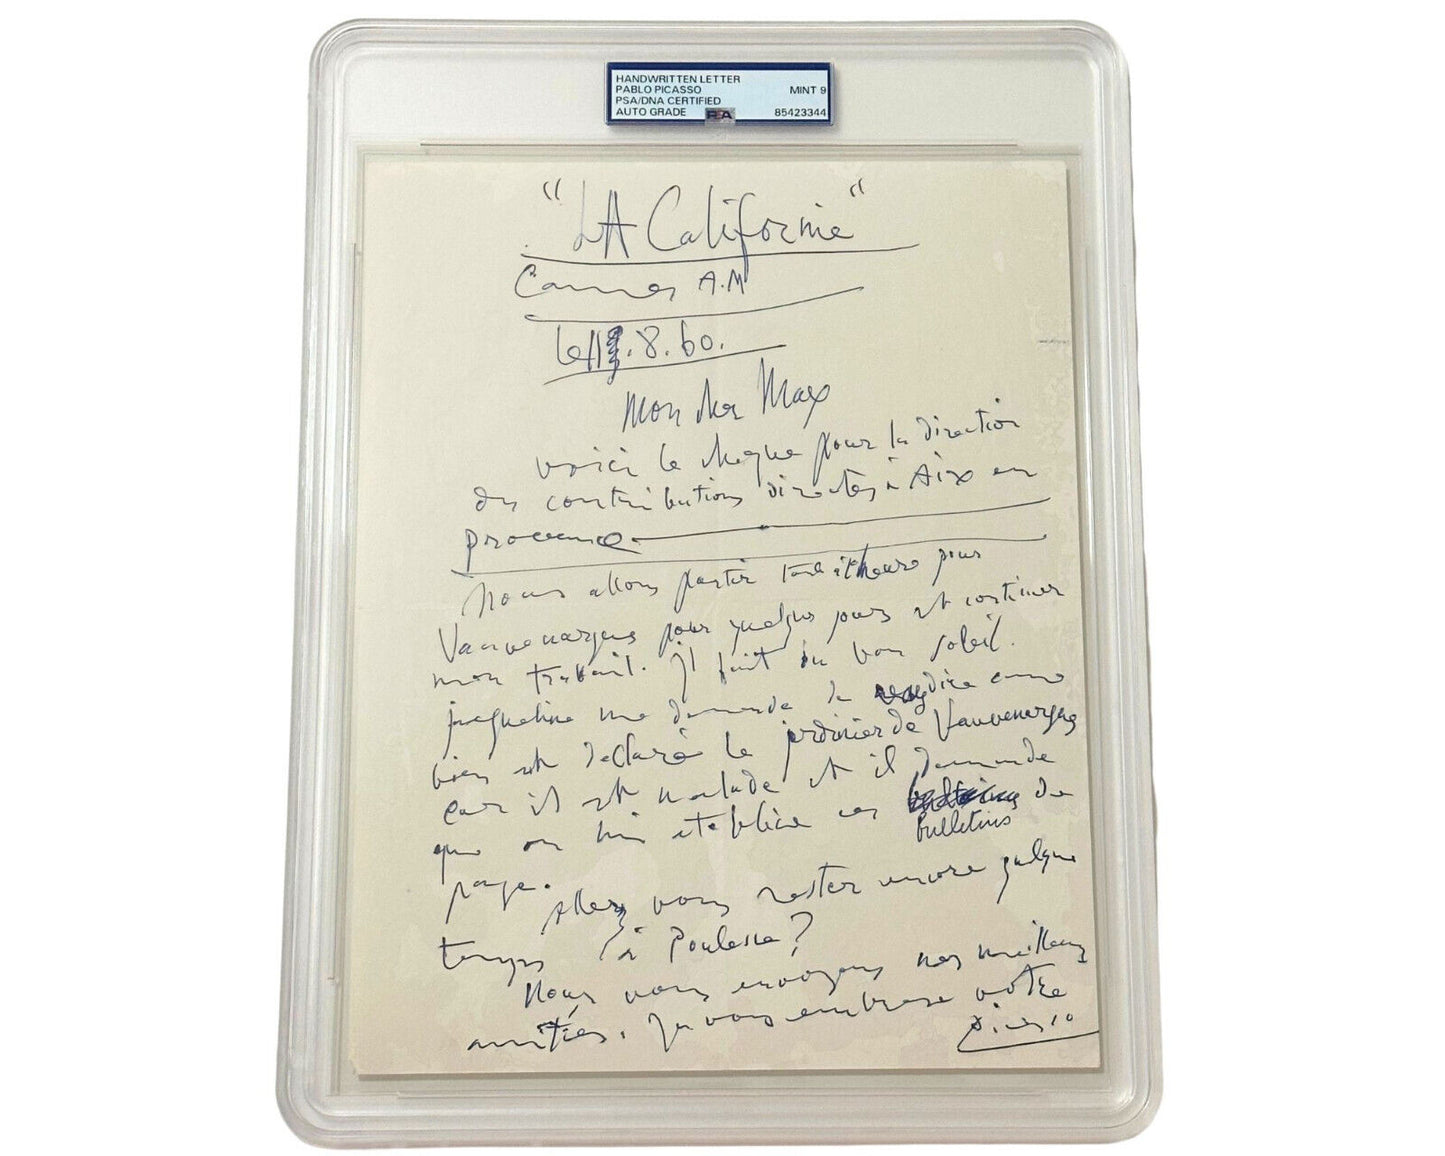 HANDWRITTEN LETTER
PABLO PICASSO MINT 9
PSA/DNA CERTIFIED
AUTO GRADE PSA 85423344
"LA Californie"
Cannes A.M
le .8.60.
Mon cher Max
voici le cheque pour la direction
des contributions directes à Aix en
provence
Nous allons partir tout à l'heure pour
Vauvenargues pour quelques jours et continuer
mon travail. Il fait du bon soleil.
jacqueline me demande de dire
bien est declaré le jardinier de Vauvenargues
car il est malade et il demande
que on lui etablice ces
bulletins de
paye.
Allez vous rester encore quelque
temps à ?
Nous vous envoyons nos meilleurs
amities. Je vous embrasse votre
Picasso